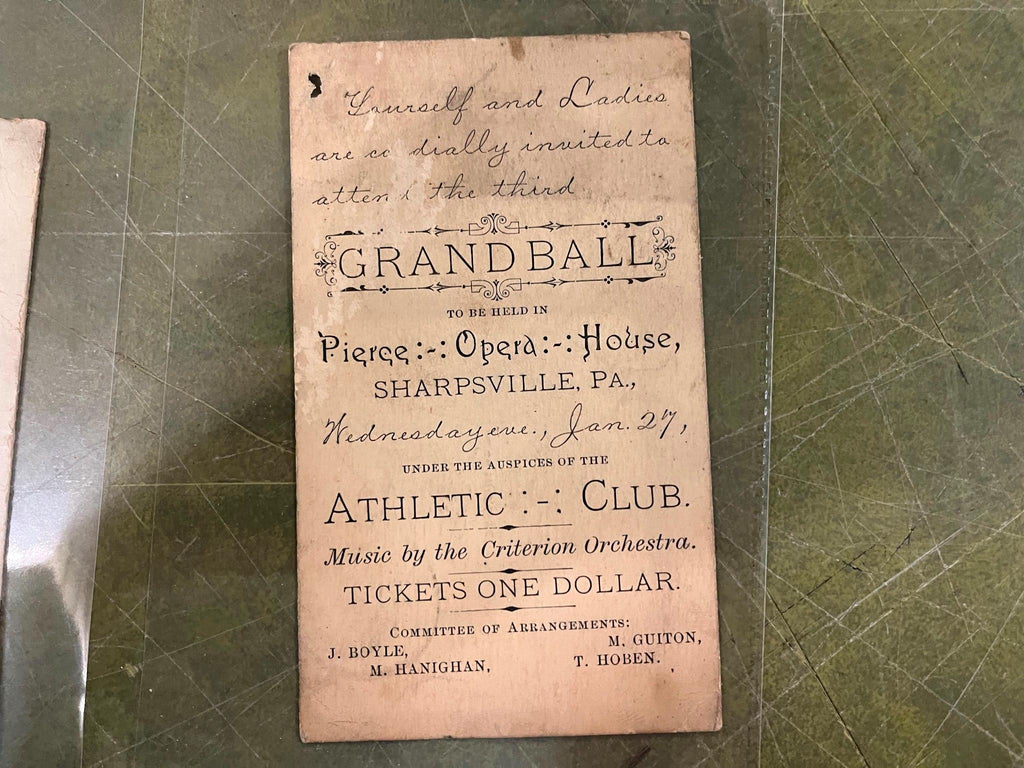 Yourself and Ladies
are co dially invited to
atten the third
GRAND BALL
TO BE HELD IN
Pierce :-: Opera :-: House,
SHARPSVILLE, PA.,
Wednesday eve., Jan. 27,
UNDER THE AUSPICES OF THE
ATHLETIC :-: CLUB.
Music by the Criterion Orchestra.
TICKETS ONE DOLLAR.
COMMITTEE OF ARRANGEMENTS:
J. BOYLE, M. GUITON,
M. HANIGHAN, T. HOBEN.